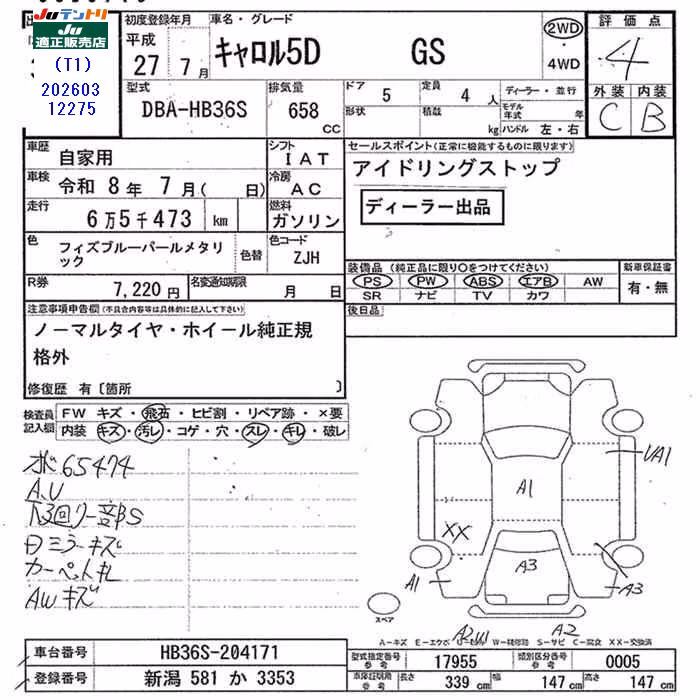 Juテントリ
Ju適正販売店
(T1)
202603
12275
初度登録年月
平成
27 7月
車名・グレード
キャロル5D GS
2WD
・
4WD
評価点
4
外装 内装
C B
型式
DBA-HB36S
排気量
658
cc
ドア
5
定員
4 人
形状
積載
kg
ディーラー・並行
モデル年式 年
ハンドル 左・右
車歴
自家用
シフト
IAT
車検
令和 8年 7月( 日)
冷房
AC
走行
6万5千473 km
燃料
ガソリン
色
フィズブルーパールメタリック
色替
色コード
ZJH
R券
7,220 円
名変通知期限
月 日
セールスポイント(正常に機能するものに限ります)
アイドリングストップ
ディーラー出品
装備品 (純正品に限り○をつけてください)
PS PW ABS エアB AW
SR ナビ TV カワ
新車保証書
有・無
後日品
注意事項申告欄(不具合内容等は具体的に記入して下さい)
ノーマルタイヤ・ホイール純正規
格外
修復歴 有〔箇所 〕
検査員
記入欄
FW キズ・飛石・ヒビ割・リペア跡・×要
内装 キズ・汚レ・コゲ・穴・スレ・キレ・破レ
65474
A.U
ミラーキズ
カーペット
AWキズ
UA1
A1
XX
A3
A1
A3
スペア
A2
A-キズ E-エクボ W-補修跡 S-サビ C-腐食 XX-交換済
車台番号
HB36S-204171
登録番号
新潟 581 か 3353
型式指定番号
参考
17955
類別区分番号
参考
0005
車庫証明用
参考
長さ
339 cm
幅
147 cm
高さ
147 cm